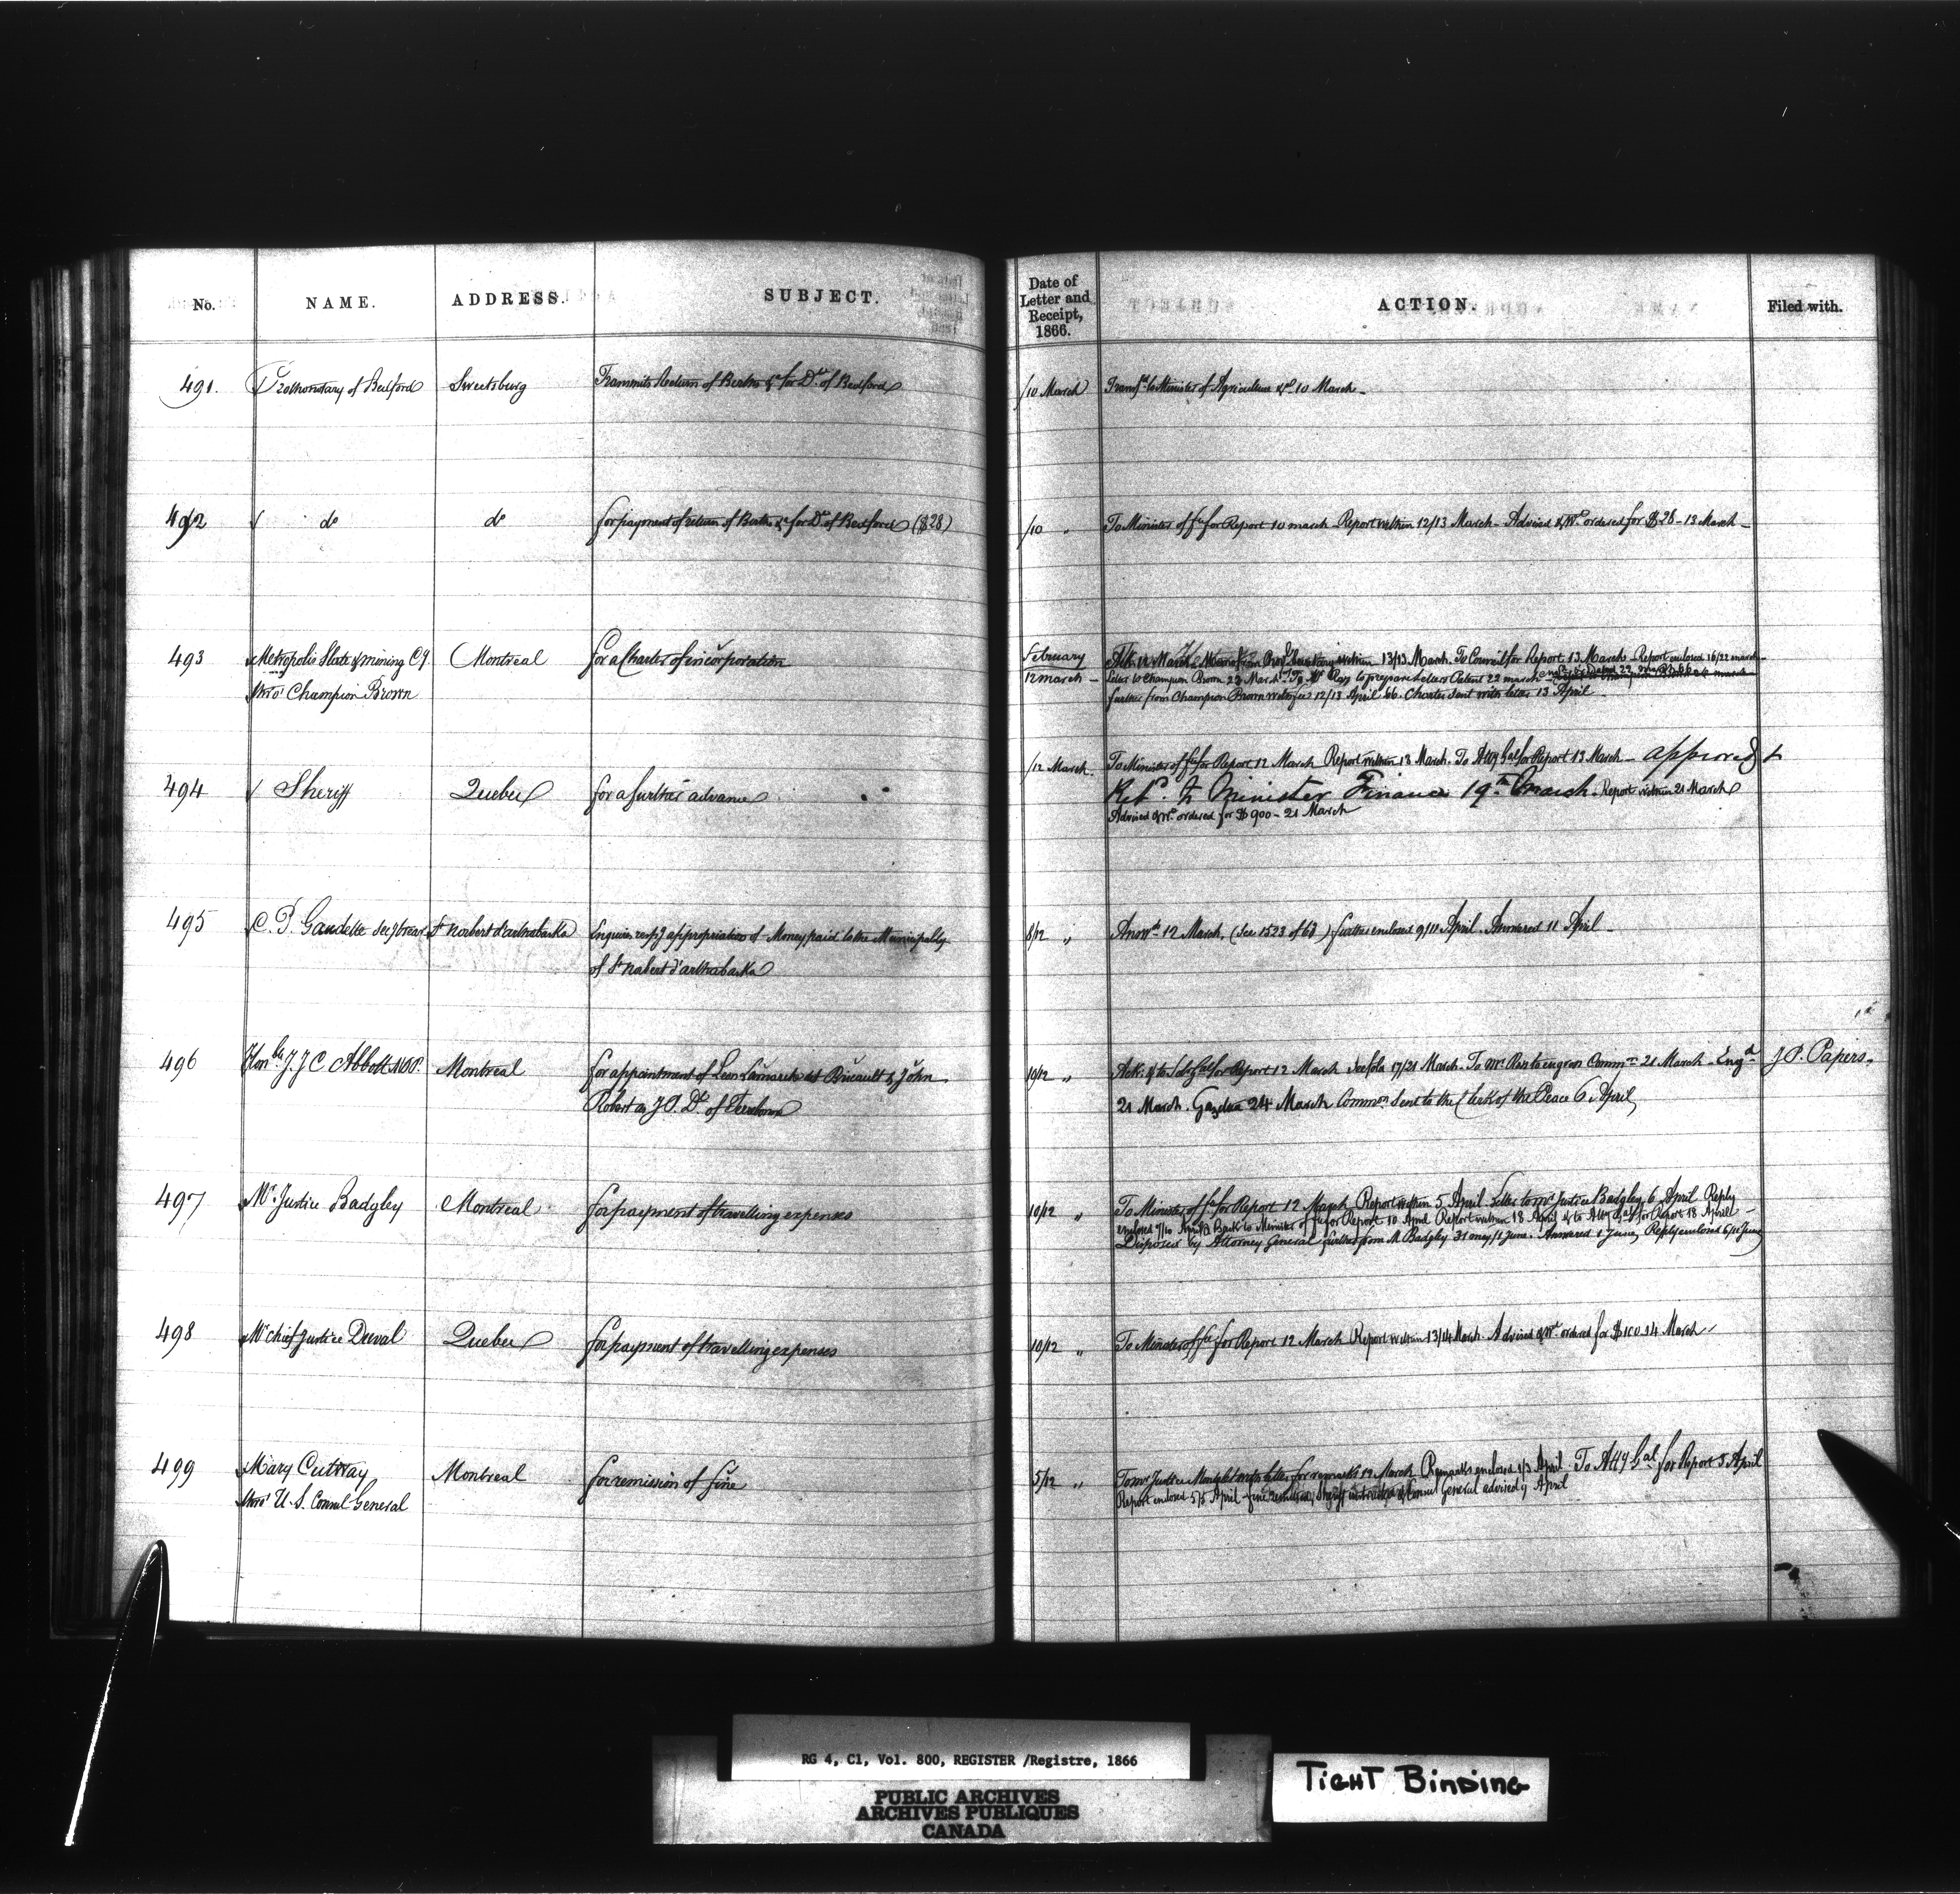 No. NAME. ADDRESS. SUBJECT. Date of Letter and Receipt, 1866. ACTION. Filed with.
491. Prothonotary of Bedford Sweetsburg Transmits Return of Births &c for Dt of Bedford /10 March Transfd to Minister of Agriculture &c 10 March
492 do do for payment of return of Births &c for Dt of Bedford ($28) /10 " To Minister of fce for Report 10 march Report within 12/13 March - Advised & Wt ordered for $28 - 13 March -
493 Metropolis Slate & mining Cy Montreal for a Charter of incorporation February Ack 12 March within 13/13 March. To Council for Report 13 March - Report enclosed 16/22 march
12 march - Letter to Champion Brown 23 March. To Mr Ray to prepare Letters Patent 22 march
Thro' Champion Brown further from Champion Brown 12/13 April 66. Charter sent with letter 13 April
/12 March. To Minister of fce for Report 12 March Report within 13 March. To Atty Gal for Report 13 March - approved &
494 Sheriff Quebec for a further advance Refd to Minister Finance 19th March. Report within 21 March
Advised & Wt ordered for $900 - 21 March
495 C. P. Gaudette Secy treasr St Norbert d'arthabaska Enquires respg appropriation of Money paid to the Municipality 8/12 " Answd 12 March. (See 1523 of 63) further enclosed 9/11 April. Answered 11 April
of St Norbert d'arthabaska
496 Honble J. J C Abbott M.P.P. Montreal for appointment of Leon Lamarche dit Bricault & John 10/12 " Ack. & to Sol Gal for Report 12 March 17/21 March. To Mr Ray to engross Commn 21 March. Engd J.P. Papers.
Robert as J.P. Dt of Terrebonne 21 March. Gazetted 24 March Commn Sent to the Clerk of the Peace 6 April
497 Mr Justice Badgley Montreal for payment of travelling expenses 10/12 " To Minister of fce for Report 12 March Report within 5 April Letter to Mr Justice Badgley 6 April Reply
enclosed 9/10 April Back to Minister of fce for Report 10 April Report within 18 April & to Atty Gal for Report 18 April
Disposed by Attorney General further from M. Badgley 31 may/1 June. Answered 1 June, Reply enclosed 6/11 June
498 Mr Chief Justice Duval Quebec for payment of travelling expenses 10/12 " To Minister of fce for Report 12 March Report within 13/14 March. Advised & Wt ordered for $100. 14 March
499 Mary Cuttray Montreal for remission of fine 5/12 " To Mr Justice Mondelet with letter for remarks 12 March Remarks enclosed 1/3 April To Atty Gal for Report 5 April
Thro' U.S. Consul General Report enclosed 5/5 April fine remitted, Sheriff instructed & Consul General advised 9 April
RG 4, C1, Vol. 800, REGISTER /Registre, 1866
PUBLIC ARCHIVES
ARCHIVES PUBLIQUES
CANADA
TIGHT BINDING